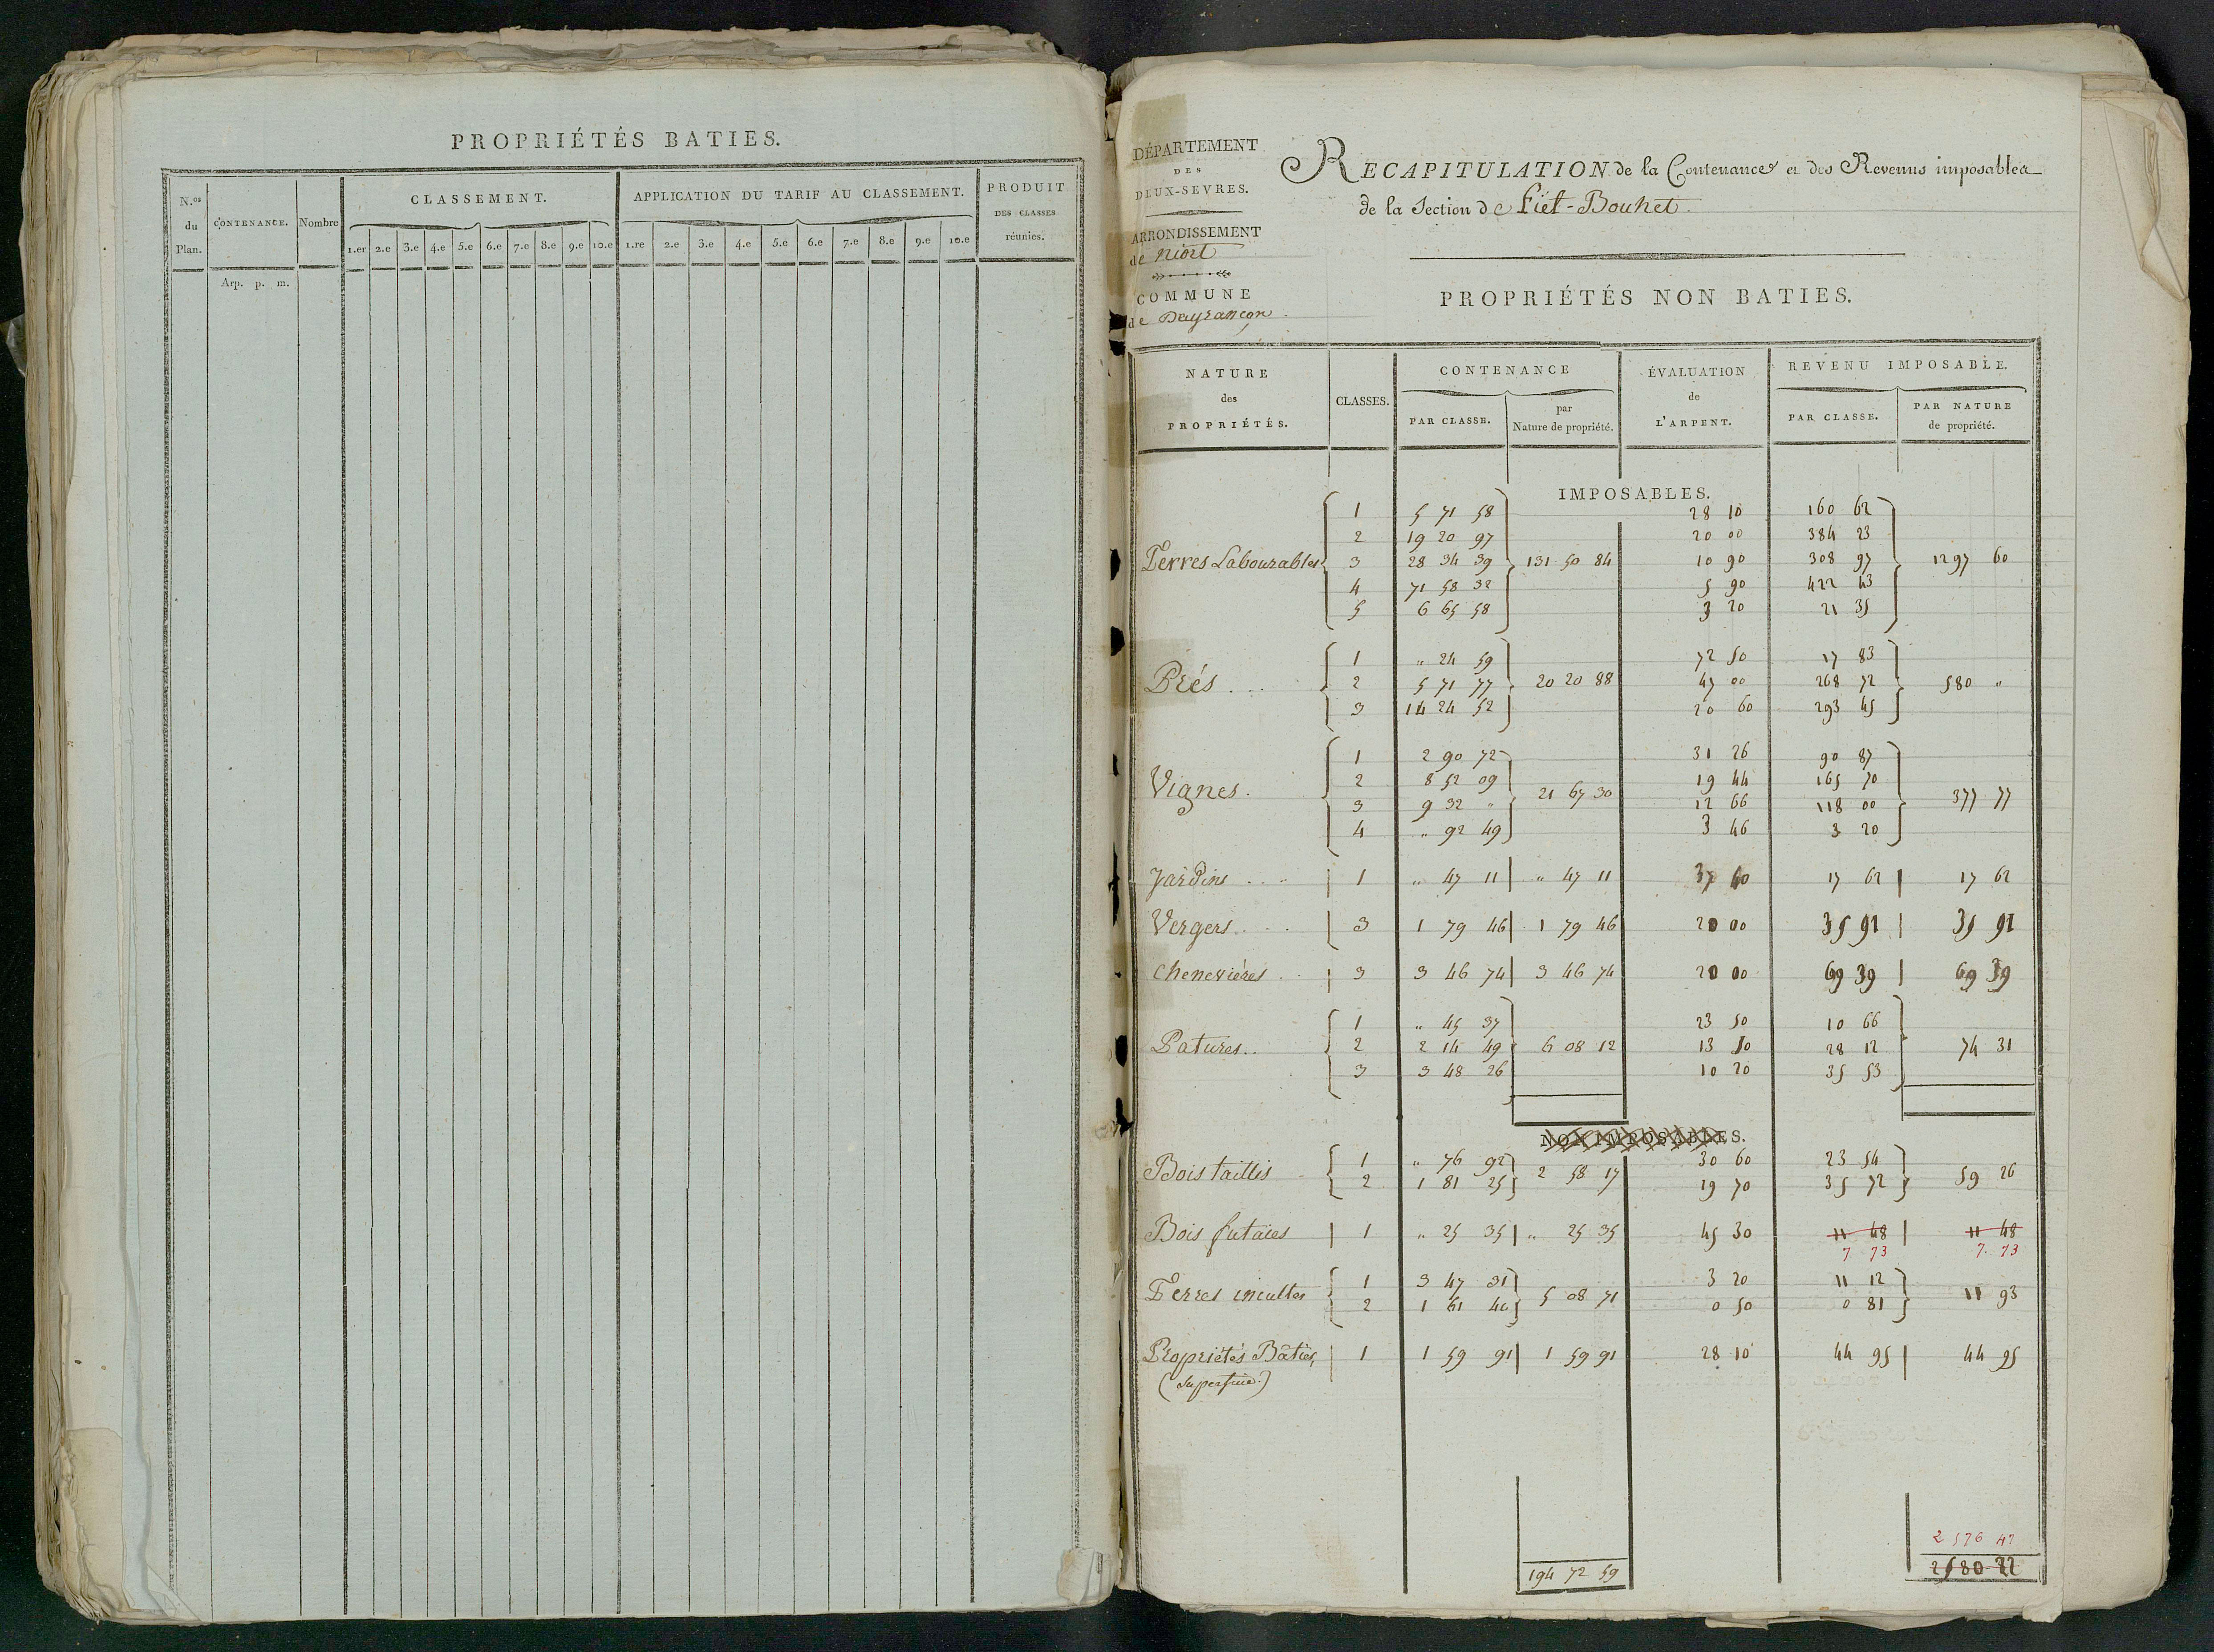 PROPRIÉTÉS BATIES.
N.os du Plan. CONTENANCE. Nombre CLASSEMENT. APPLICATION DU TARIF AU CLASSEMENT. PRODUIT DES CLASSES réunies.
1.er 2.e 3.e 4.e 5.e 6.e 7.e 8.e 9.e 10.e 1.re 2.e 3.e 4.e 5.e 6.e 7.e 8.e 9.e 10.e
Arp. p. m.
DÉPARTEMENT
DES
DEUX-SEVRES.
ARRONDISSEMENT
de Niort
COMMUNE
de Deyrançon
RECAPITULATION de la Contenance et des Revenus imposables
de la Section de Fief-Bouhet.
PROPRIÉTÉS NON BATIES.
NATURE des PROPRIÉTÉS. CLASSES. CONTENANCE ÉVALUATION de L'ARPENT. REVENU IMPOSABLE.
PAR CLASSE. par Nature de propriété. PAR CLASSE. PAR NATURE de propriété.
IMPOSABLES.
1 5 71 58 28 10 160 62
2 19 20 97 20 00 384 23
Terres Labourables 3 28 34 39 131 50 84 10 90 308 97 1297 60
4 71 58 32 5 90 422 43
5 6 65 58 3 20 21 35
1 " 24 59 72 50 17 83
Prés 2 5 71 77 20 20 88 47 00 268 72 580 "
3 14 24 52 20 60 293 45
1 2 90 72 31 26 90 87
Vignes. 2 8 52 09 21 67 30 19 44 165 70 377 77
3 9 32 " 12 66 118 00
4 " 92 49 3 46 3 20
Jardins 1 " 47 11 " 47 11 37 40 17 62 17 62
Vergers 3 1 79 46 1 79 46 20 00 35 92 35 92
Chenevières 3 3 46 74 3 46 74 20 00 69 39 69 39
1 " 45 37 23 50 10 66
Patures.. 2 2 14 49 6 08 12 13 10 28 12 74 31
3 3 48 26 10 20 35 53
NON IMPOSABLES.
Bois taillis 1 " 76 92 2 58 17 30 60 23 54 59 26
2 1 81 25 19 70 35 72
Bois futaies 1 " 25 35 " 25 35 45 30 11 48 11 48
7 73 7. 73
Terres incultes 1 3 47 31 5 08 71 3 20 11 12 11 93
2 1 61 40 0 50 0 81
Propriétés Bâties, 1 1 59 91 1 59 91 28 10 44 95 44 95
(Superficie.)
2 576 47
194 72 59 2580 22